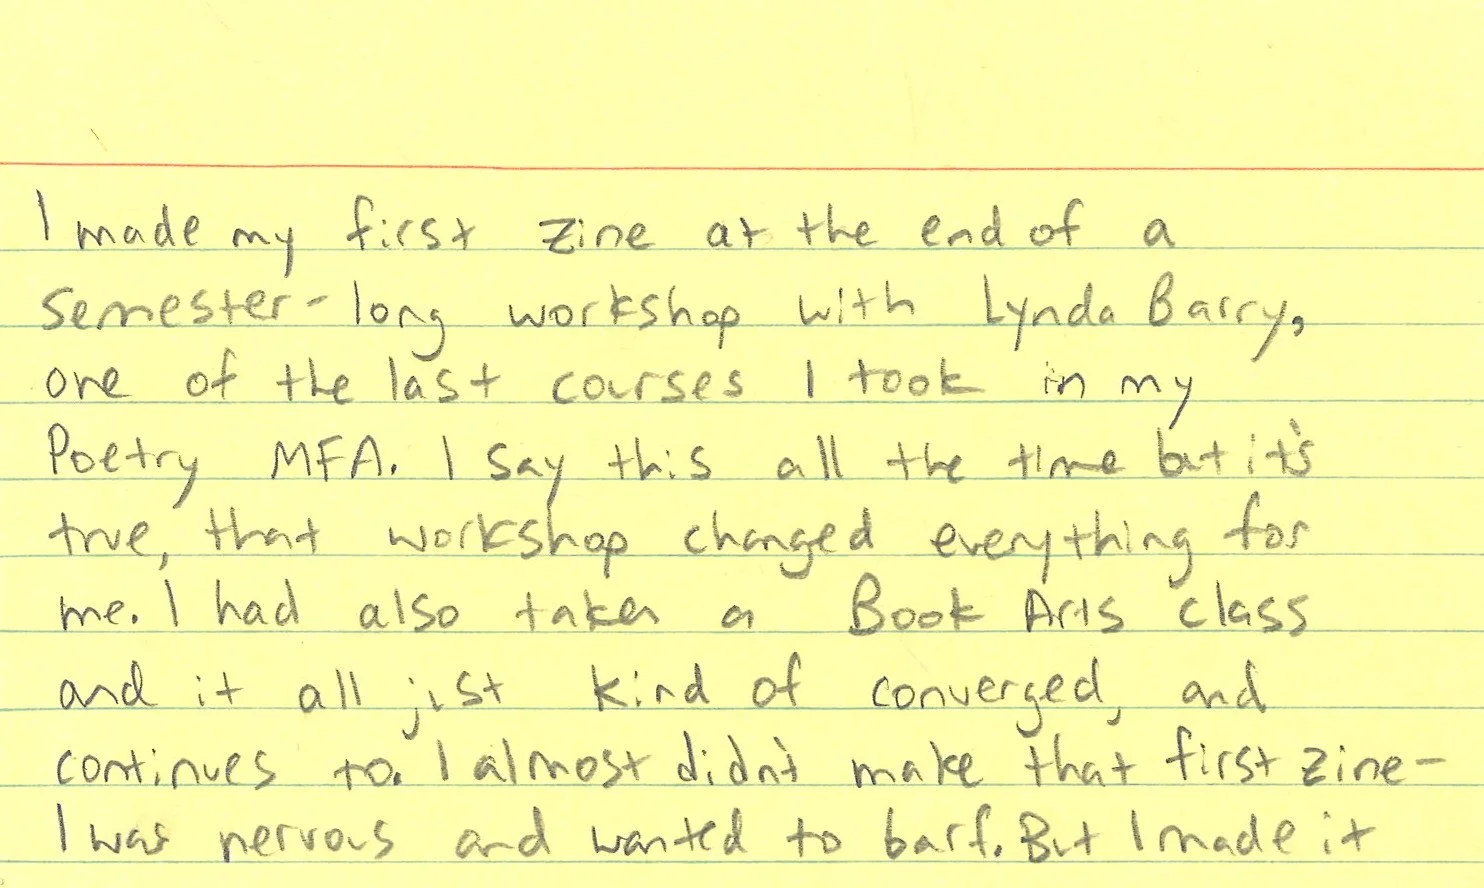 I made my first zine at the end of a
semester-long workshop with Lynda Barry,
one of the last courses I took in my
Poetry MFA. I say this all the time but it's
true, that workshop changed everything for
me. I had also taken a Book Arts class
and it all just kind of converged, and
continues to. I almost didn't make that first zine-
I was nervous and wanted to barf. But I made it